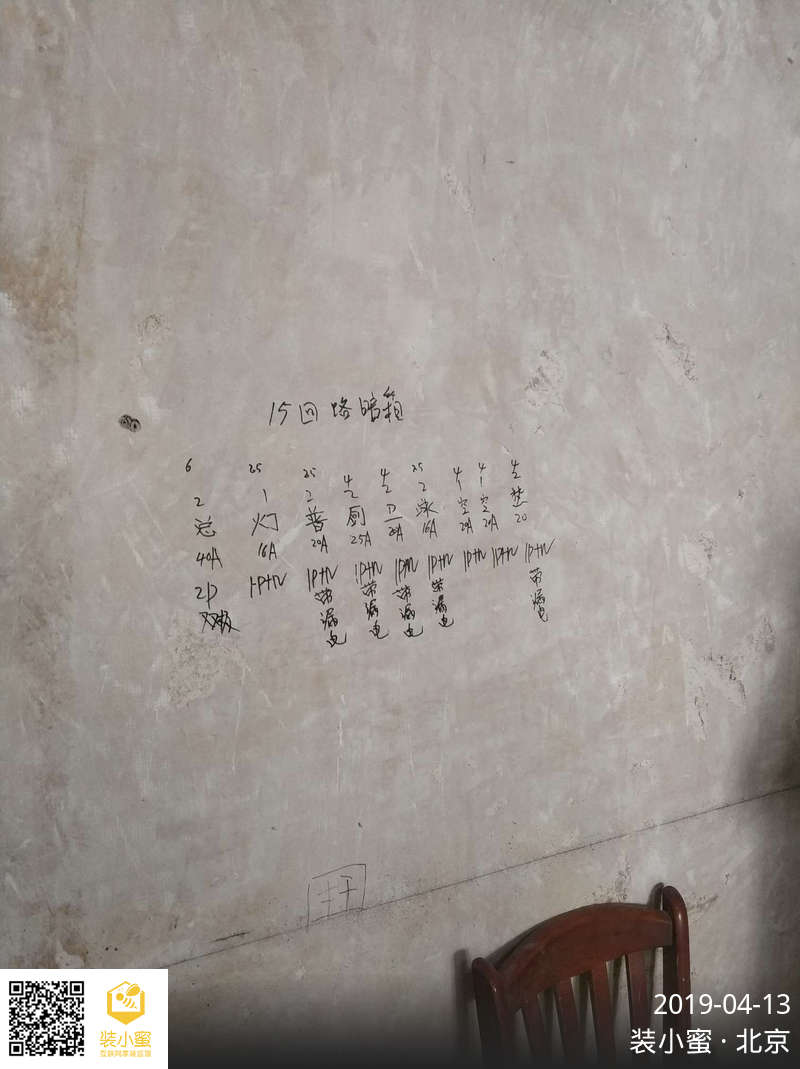 15回路暗箱
6 25 25 4 4 25 4 4 4
2 1 2 2 2 2 1 1 2
总 灯 普 厨 卫 冰 空 空 热
40A 16A 20A 25A 20A 16A 20A 20A 20
2P 1P+N 1P+N 1P+N 1P+N 1P+N 1P+N 1P+N 1P+N
双极 带漏电 带漏电 带漏电 带漏电 带漏电
装小蜜
2019-04-13
装小蜜·北京